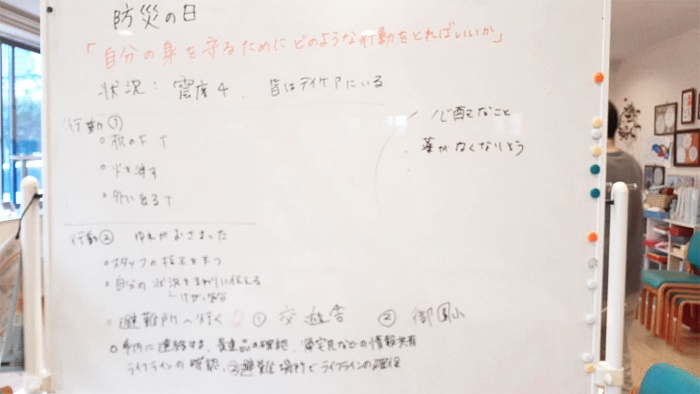 防災の日
「自分の身を守るために どのような行動をとればいいか」
状況： 震度4、 皆はデイケアにいる
行動①
○机の下↑
○火を消す
○外に出る↑
心配なこと
薬がなくなりそう
行動② ゆれがおさまった
○スタッフの指示をまつ
○自分の状況をまわりに伝える
○避難所へ行く ① 交遊舎 ② 御園山
に連絡する、 の確認、 などの情報共有
ライフラインの確認、 避難場所とライフラインの確保